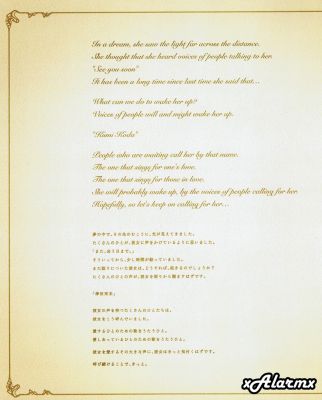 In a dream, she saw the light far across the distance.
She thought that she heard voices of people talking to her.
"See you soon"
It has been a long time since last time she said that...
What can we do to make her up?
Voices of people will and might make her up.
"Kumi Koda"
People who are waiting call her by that name.
The one that sings for one's love.
The one that sings for those in love.
She will probably make up, by the voices of people calling for her.
Hopefully, so let's keep on calling for her...
夢の中で、その光のむこうに、光が見えてきました。
たくさんのひとが、彼女に声をかけているように思いました。
「また、会う日まで。」
そういってから、少し時間が経っていました。
また眠りについた彼女は、どうすれば、起きるのでしょうか?
たくさんのひとの声が、彼女を眠りから覚ますはずです。
「倖田來未」
彼女に声を持つたくさんのひとたちは、
彼女をこう呼んでいました。
愛するひとのための歌をうたうひと。
愛しあっているひとのための歌をうたうひと。
彼女を愛するその大きな声に、彼女はきっと気付くはずです。
呼び続けることで、きっと。
xAlarmx